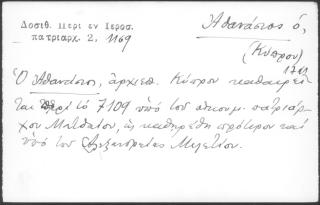 Δοσιθ. Περὶ ἐν Ἱεροσ.
πατριαρχ. 2, 1169
Ἀθανάσιος ὁ,
(Κύπρου)
Ὁ Ἀθανάσιος, ἀρχιεπ. Κύπρου καθαιρεῖ
ται περὶ τὸ 7109 ὑπὸ τοῦ οἰκουμ. πατριάρ
χου Ματθαίου, ὡς καθῃρέθη πρότερον καὶ
ὑπὸ τοῦ Ἀλεξανδρείας Μελετίου.